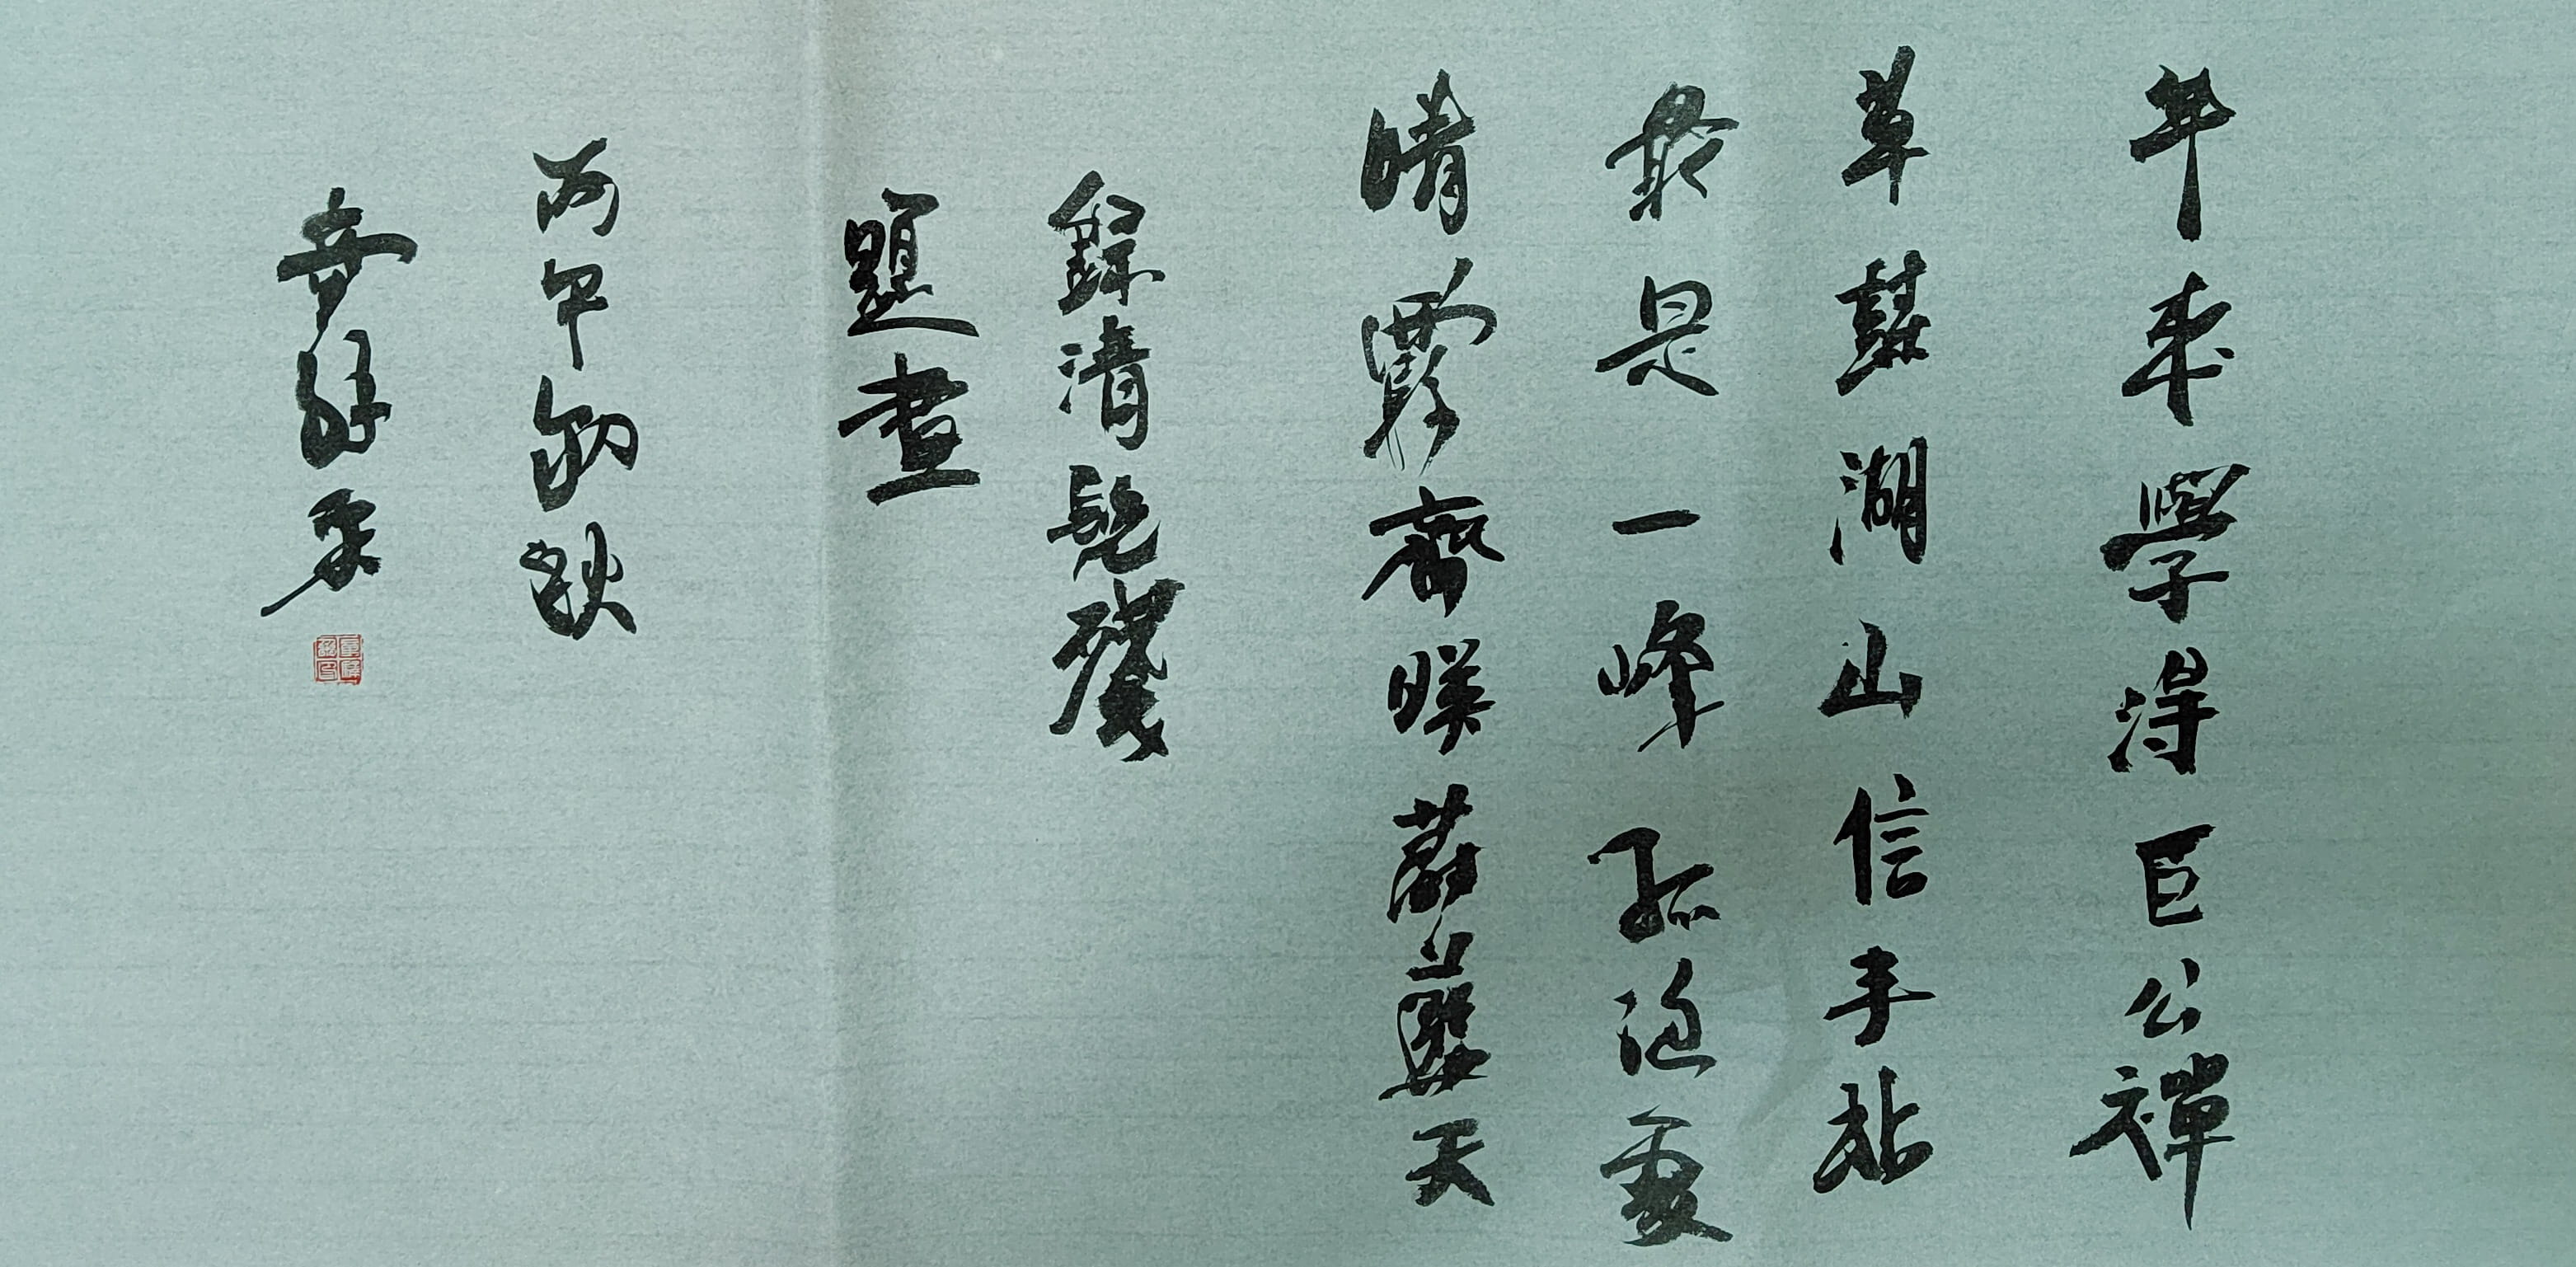 年來學得巨公禪
草樹湖山信手拈
最是一峰孤絕處
晴霞齊映蔚藍天
錄清髡殘
題畫
丙午初秋